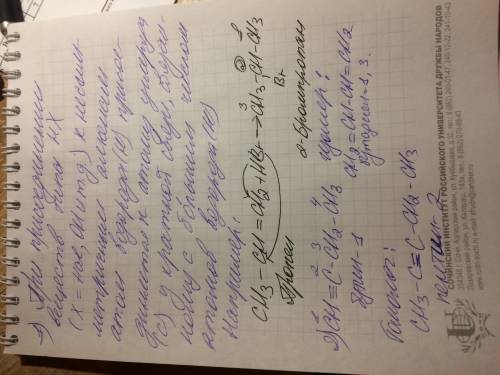 1) При присоединении
веществ типа HX
(X = Hal, OH и т.д.) к несим-
метричным алкенам
атом водорода (H) присо-
единяется к атому углерода
(C) у кратной связи, более
атомов водорода (H)
Например:
CH3-CH=CH2+HBr→CH3-CH-CH3
3 2 1
Br
Пропен
2-бромпропан
2) CH≡C-CH2-CH3
1 2 3 4
бутин-1
изомер:
CH2=CH-CH=CH2
бутадиен-1,3.
Гомолог:
CH3-C≡C-CH2-CH3
пентин-2
СОЧИНСКИЙ ИНСТИТУТ РОССИЙСКОГО УНИВЕРСИТЕТА ДРУЖБЫ НАРОДОВ